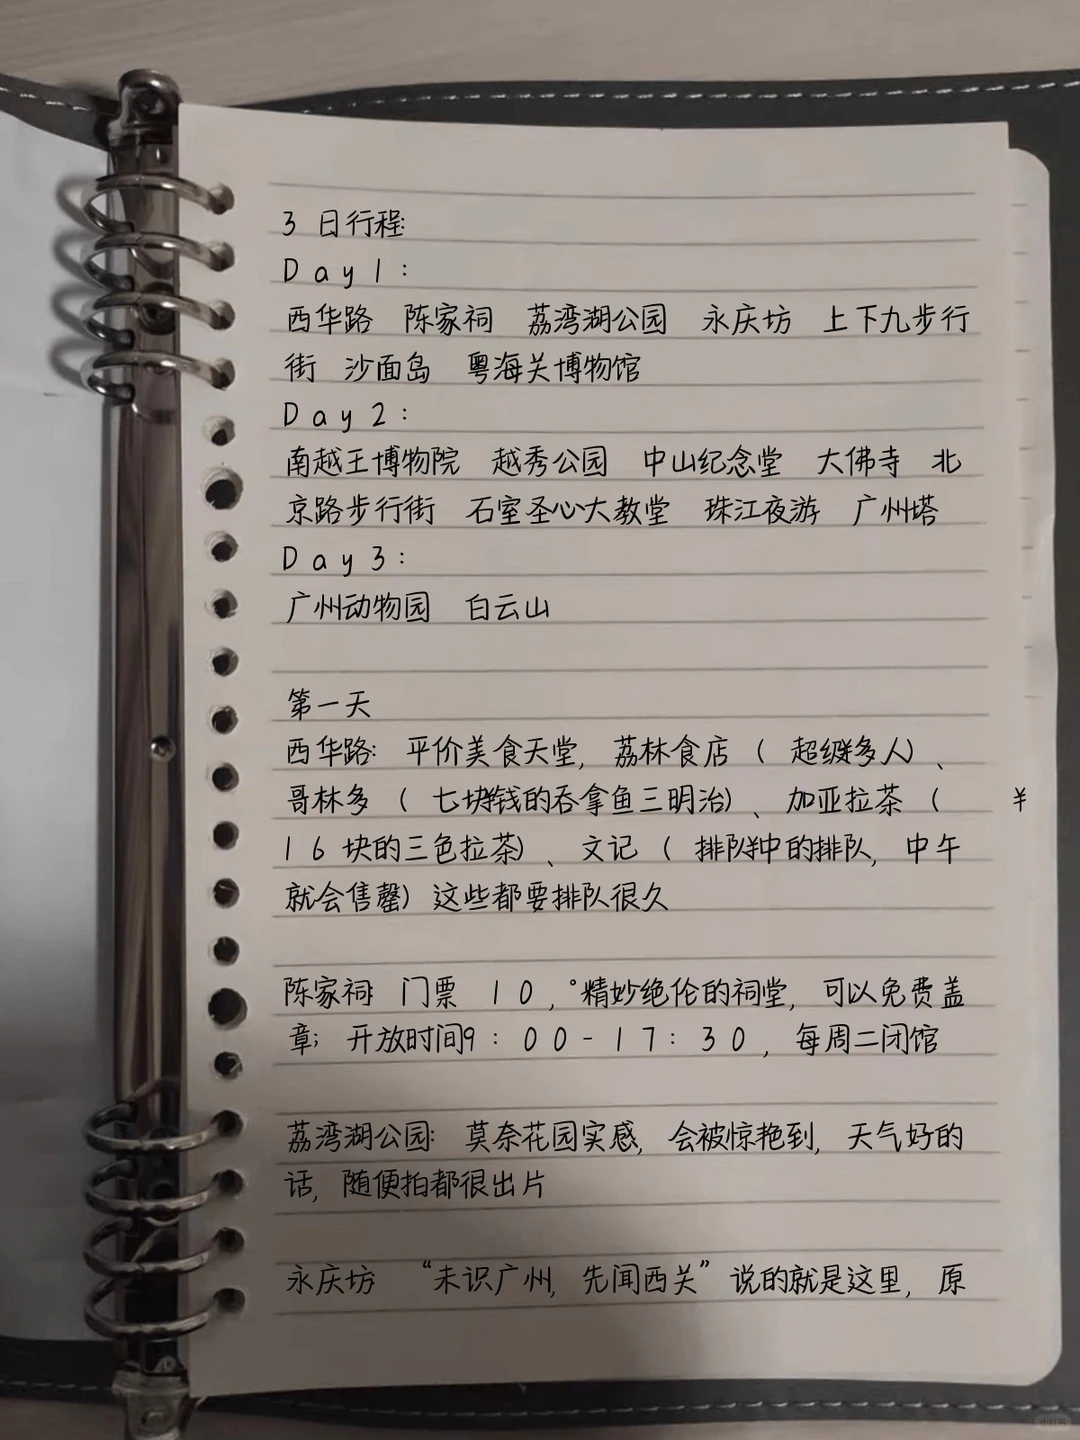 3 日行程:
Day1:
西华路 陈家祠 荔湾湖公园 永庆坊 上下九步行
街 沙面岛 粤海关博物馆
Day2:
南越王博物院 越秀公园 中山纪念堂 大佛寺 北
京路步行街 石室圣心大教堂 珠江夜游 广州塔
Day3:
广州动物园 白云山
第一天
西华路: 平价美食天堂, 荔林食店 ( 超级多人) 、
哥林多 ( 七块钱的吞拿鱼三明治) 、加亚拉茶 (
16 块的三色拉茶) 、文记 ( 排队中的排队, 中午
就会售罄) 这些都要排队很久
陈家祠: 门票 10,°精妙绝伦的祠堂, 可以免费盖
章; 开放时间9:00-17:30, 每周二闭馆
荔湾湖公园: 莫奈花园实感, 会被惊艳到, 天气好的
话, 随便拍都很出片
永庆坊: “未识广州, 先闻西关”说的就是这里, 原